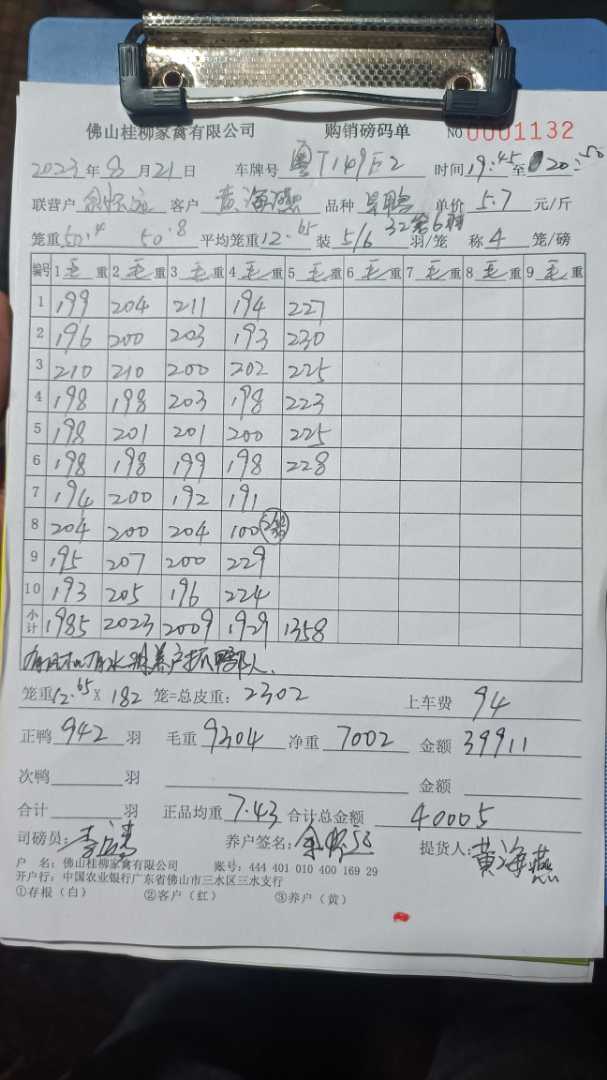 佛山桂柳家禽有限公司 购销磅码单 NO 0001132
2023年8月21日 车牌号 粤T149E2 时间19:45至20:50
联营户 客户 黄海燕 品种 单价 5.7 元/斤
笼重50.4 50.8 平均笼重12.65 装 5/6 32笼6 羽/笼 称4笼/磅
编号 1毛重 2毛重 3毛重 4毛重 5毛重 6毛重 7毛重 8毛重 9毛重
1 199 204 211 194 227
2 196 200 203 193 230
3 210 210 200 202 225
4 198 198 203 198 223
5 198 201 201 200 225
6 198 198 199 198 228
7 194 200 192 191
8 204 200 204 100
9 195 207 200 229
10 193 205 196 224
小计 1985 2023 2009 1929 1358
笼重12.65 X 182 笼=总皮重: 2302 上车费 94
正鸭 942 羽 毛重 9304 净重 7002 金额 39911
次鸭 羽 金额
合计 羽 正品均重 7.43 合计总金额 40005
司磅员: 养户签名: 提货人: 黄海燕
户 名: 佛山桂柳家禽有限公司 账号: 444 401 010 400 169 29
开户行: 中国农业银行广东省佛山市三水区三水支行
①存根(白) ②客户(红) ③养户(黄)